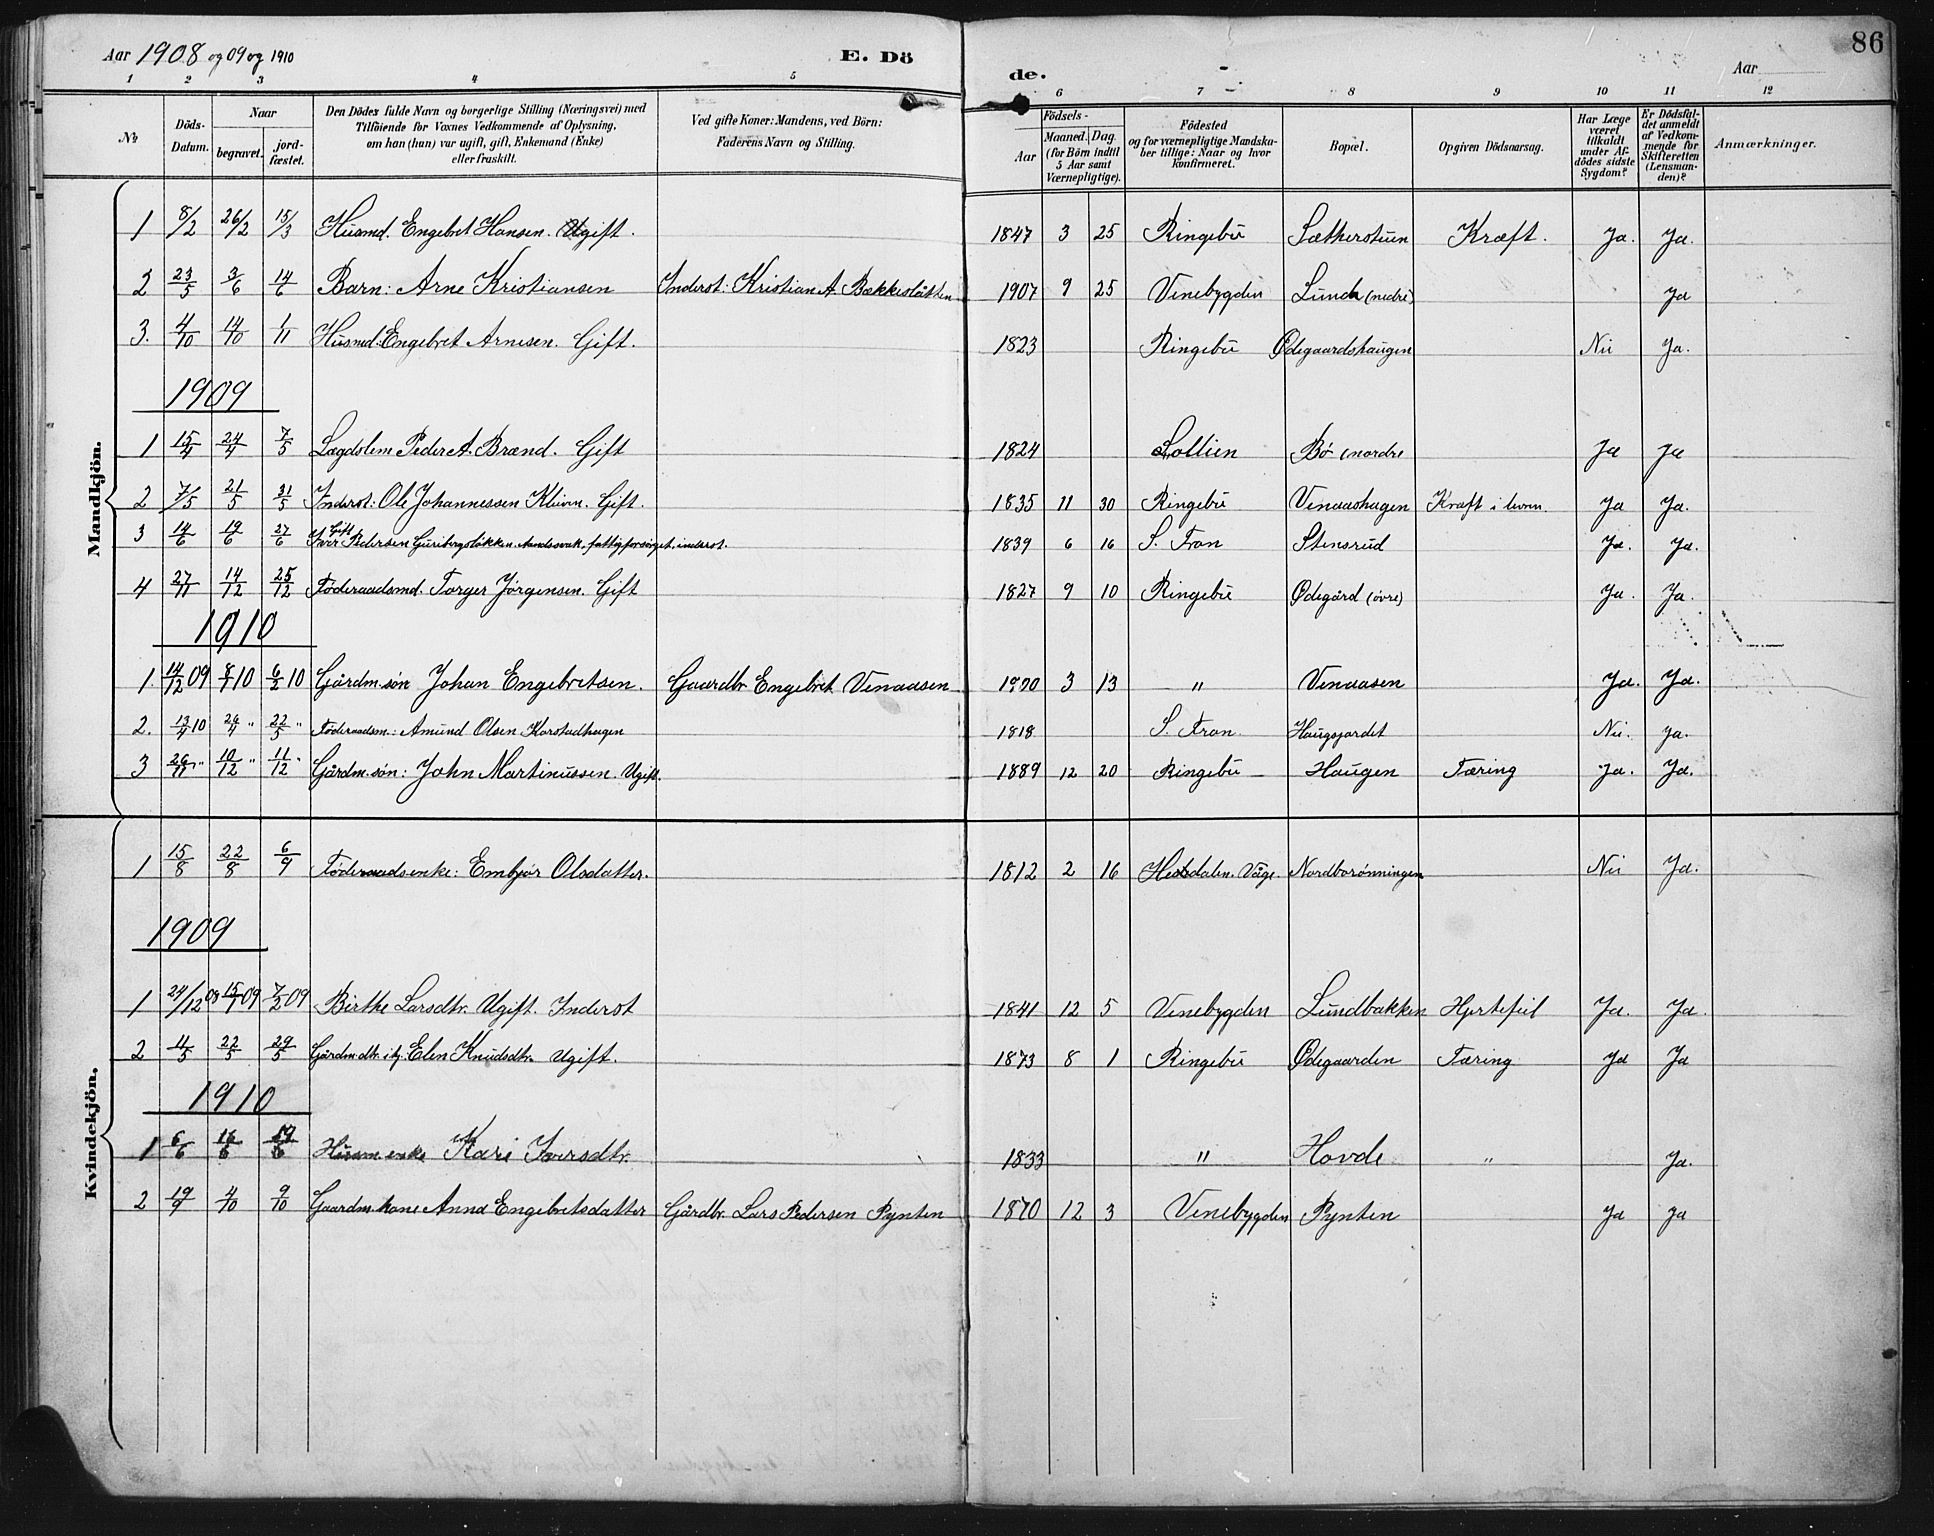 Aar 1908 og 09 og 1910 E. Dö de. Aar 86
1 2 3 4 5 6 7 8 9 10 11 12
No. Döds-Datum. Naar begravet. jordfæstet. Den Dödes fulde Navn og borgerlige Stilling (Næringsvei) med Tilföiende for Voxnes Vedkommende af Oplysning, om han (hun) var ugift, gift, Enkemand (Enke) eller fraskilt. Ved gifte Koner: Mandens, ved Börn: Faderens Navn og Stilling. Födsels- Aar Maaned. Dag. (for Börn indtil 5 Aar samt Værnepligtige). Födested og for værnepligtige Mandskaber tillige: Naar og hvor konfirmeret. Bopæl. Opgiven Dödsaarsag. Har Læge været tilkaldt under Afdödes sidste Sygdom? Er Dödsfaldet anmeldt af Vedkommende for Skifteretten (Lensmanden)? Anmærkninger.
Mandkjön.
1 8/2 26/2 15/3 Husmd. Engebret Hansen. Ugift. 1847 3 25 Ringebu Sætherstuen Kræft. Ja. Ja.
2 23/5 3/6 14/6 Barn: Arne Kristiansen Inderst: Kristian A. Bækkesløtten 1907 9 25 Venebygden Lunde (nedre) Ja
3. 4/10 14/10 1/11 Husmd. Engebret Arnesen. Gift. 1823 Ringebu Ødegaardshaugen Nei Ja.
1909
1 15/4 24/4 7/5 Lægdslem Peder A. Brænd. Gift 1824 Sollien Bø (nordre Ja Ja
2 7/5 21/5 31/5 Inderst: Ole Johannessen Kluvn. Gift. 1835 11 30 Ringebu Venaashagen Kræft i leveren Ja Ja.
3 14/6 19/6 27/6 Gift Iver Pedersen Guribergsløkken. Aandssvak, fattigforsørget, inderst. 1839 6 16 S. Fron Stensrud Ja. Ja.
4 27/11 14/12 25/12 Føderaadsmd. Torger Jørgensen. Gift 1827 9 10 Ringebu Ødegård (øvre) Ja. Ja.
1910
1. 14/12 09 8/1 10 6/2 10 Gårdm.søn Johan Engebretsen. Gaardbr. Engebret Venaasen 1890 3 13 " Venaasen Ja. Ja.
2. 13/4 10 24/4 " 22/5 " Føderaadsm.: Amund Olsen Korstadhagen 1818 S. Fron. Haugsjordet Nei. Ja.
3 26/11 " 10/12 " 11/12 " Gårdm.søn: John Martinussen Ugift. 1889 12 20 Ringebu Haugen Tæring Ja. Ja.
Kvindekjön.
1 15/8 22/8 6/9 Føderaadsenke: Embjør Olsdatter. 1812 2 16 Hedalen. Våge. Nordborønningen Nei Ja.
1909
1 24/12 08 15/1 09 7/2 09 Birthe Larsdtr. Ugift. Inderst 1841 12 5 Venebygden Lundbakken Hjertefeil Ja. Ja.
2 11/5 22/5 29/5 Gårdm.dtr. Elen Knudsdtr. Ugift. 1873 8 1 Ringebu Ødegaarden Tæring Ja Ja
1910
1 6/6 16/6 19/6 Husm. enke Kari Iversdtr. 1833 " Hovde " Ja.
2 19/9 4/10 9/10 Gaardm.kone Anna Engebretsdatter Gårdbr. Lars Pedersen Pynten 1870 12 3 Venebygden Pynten Ja Ja